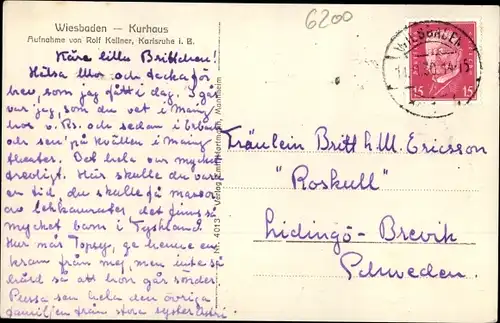 Wiesbaden — Kurhaus
Aufnahme von Rolf Kellner, Karlsruhe i. B.
6200
WIESBADEN
30.14-15
15 15
Kära lilla Brittchen!
Hälsa Mor och tacka för
brev, som jag fått i dag. I går
var jag, som du vet i Mainz
hos v. Rs. och sedan i
och sen på kvällen i Mainz
theater. Det hela var mycket
trevligt. Här skulle du vara
en tid, du skulle få massor
av lekkamrater det finns så
mycket barn i Tyskland.
Hur mår Topsy, ge henne en
kram från mej, men inte så
hård så att hon går sönder.
Pussa sen hela den övriga
familjen från stora syster
Nr. 4013 Verlag Emil Hartmann, Mannheim
Fräulein Britt h/M. Ericson
"Roskull"
Lidingö-Brevik
Schweden.